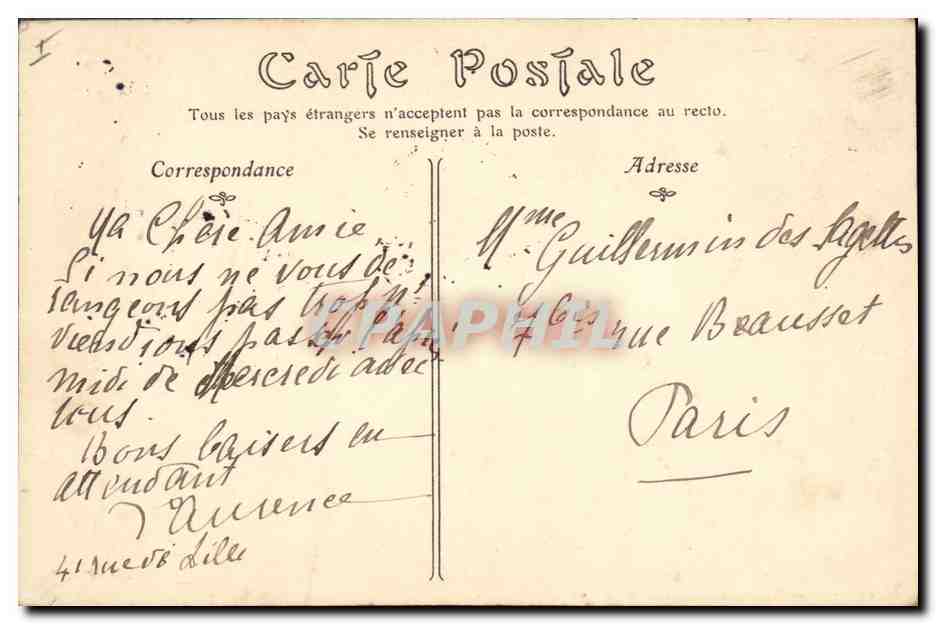 Carte Postale
Tous les pays étrangers n'acceptent pas la correspondance au recto.
Se renseigner à la poste.
Correspondance
Ma Chère Amie
Si nous ne vous dé-
rangeons pas trop n/
viendrions passer l'après
midi de Mercredi avec
vous.
Bons baisers en
attendant
41 rue de Lille
Adresse
Mme Guillermin des Sagettes
7 bis rue Beausset
Paris
CPAPHIL